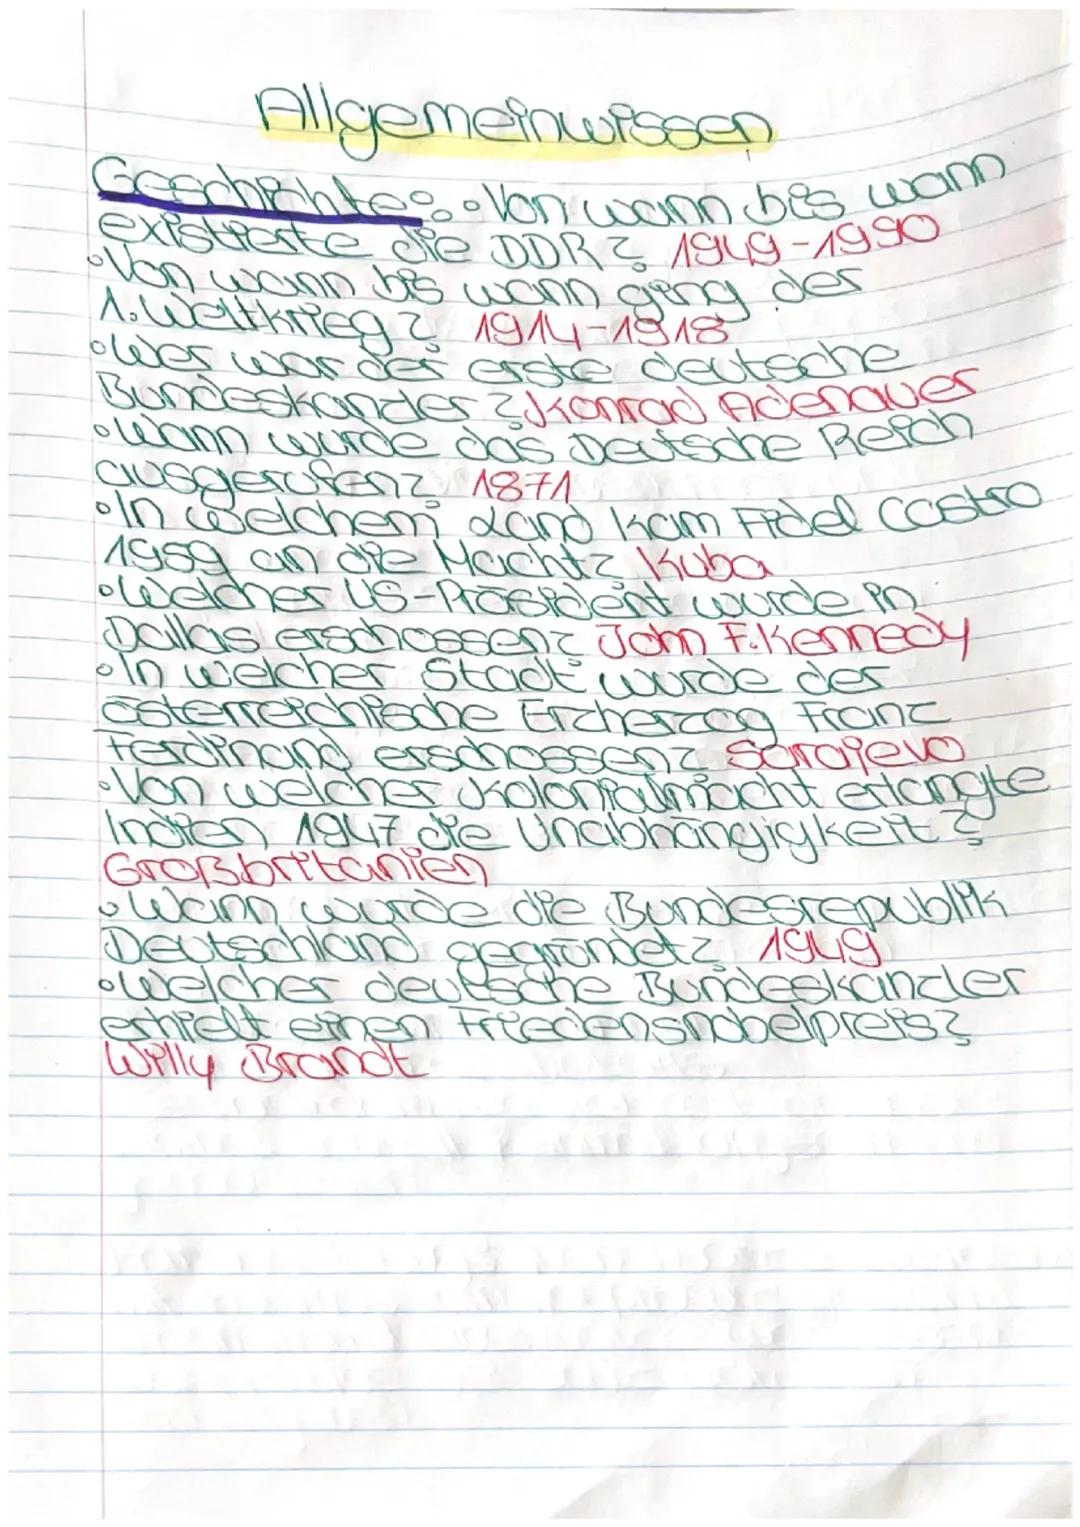 Allgemeinwissen
Geschichte: • Von wann bis wann
existierte die DDR? 1949-1990
• Von wann bis wann ging der
1. Weltkrieg? 1914-1918
• Wer war der erste deutsche
Bundeskanzler? Konrad Adenauer
• Wann wurde das Deutsche Reich
ausgerufen? 1871
• In welchem Land kam Fidel Castro
1959 an die Macht? Kuba
• Welcher US-Präsident wurde in
Dallas erschossen? John F. Kennedy
• In welcher Stadt wurde der
österreichische Erzherzog Franz
Ferdinand erschossen? Sarajevo
• Von welcher Kolonialmacht erlangte
Indien 1947 die Unabhängigkeit?
Großbritanien
• Wann wurde die Bundesrepublik
Deutschland gegründet? 1949
• Welcher deutsche Bundeskanzler
erhielt einen Friedensnobelpreis?
Willy Brandt